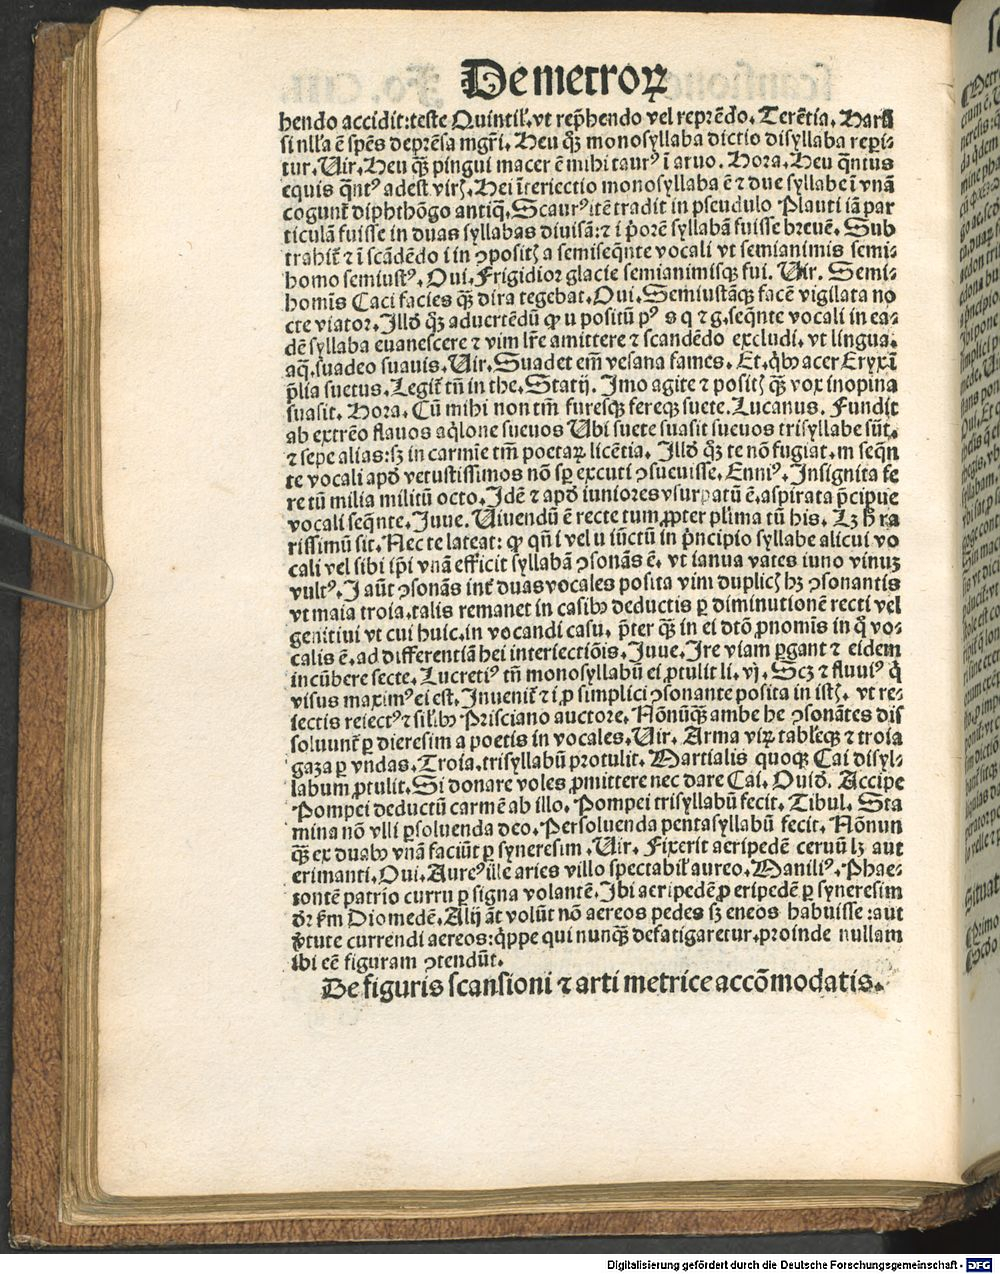 De metroꝝ
hendo accidit:teste Quintil̄.vt rep̄hendo vel reprēdo.Terētia. Har⁊
si nll'a ē spēs deprēsa mgr̄i. Heu qꝫ monosyllaba dictio disyllaba reperi⸗
tur.Uir.Heu qꝫ pingui macer ē mihi taurꝰ ī aruo. Hora. Heu q̄ntus
equis q̄ntꝰ adest viris.Hei īteriectio monosyllaba ē ⁊ due syllabe ī vnā
cogunt̄ diphthōgo antiq̄.Scaurꝰ itē tradit in pseudulo Plauti iā par
ticulā fuisse in duas syllabas diuisā:⁊ i p̄orē syllabā fuisse breuē. Sub
trahit̄ ⁊ ī scādēdo i in ꝯposit̄ a semi seq̄nte vocali vt semianimis semi⸗
homo semiustꝰ. Oui.Frigidior glacie semianimisqꝫ fui. Uir. Semi⸗
homīs Caci facies qꝫ dira tegebat.Oui.Semiustāqꝫ facē vigilata no
cte viator.Illd̄ qꝫ aduertēdū ꝙ u positū pꝰ s q ⁊ g.seq̄nte vocali in ea⸗
dē syllaba euanescere ⁊ vim lr̄e amittere ⁊ scandēdo excludi. vt lingua.
aq̄.suadeo suauis.Uir.Suadet em̄ vesana fames. Et.q̄bꝰ acer Eryxī
p̄lia suetus.Legit̄ tn̄ in the.Statij. Imo agite ⁊ posit̄ qꝫ vox inopina
suasit. Hora.Cū mihi non tm̄ furesqꝫ fereqꝫ suete.Lucanus. Fundit
ab extrēo flauos aq̄lone sueuos Ubi suete suasit sueuos trisyllabe sūt.
⁊ sepe alias:sꝫ in carmīe tm̄ poetaꝝ licētia. Illd̄ qꝫ te nō fugiat.m seq̄n
te vocali apd̄ vetustissimos nō sp̄ excuti ꝯsueuisse.Enniꝰ.Insignita fe
re tū milia militū octo.Idē ⁊ apd̄ iuniores vsurpatū ē.aspirata p̄cipue
vocali seq̄nte.Juue.Uiuendū ē recte tum ꝓpter pl'ima tū his. Lꝫ h̄ ra
rissimū sit.Nec te lateat: ꝙ qn̄ i vel u iūctū in p̄ncipio syllabe alicui vo
cali vel sibi ip̄i vnā efficit syllabā ꝯsonās ē. vt ianua vates iuno vinuꝫ
vultꝰ.I aūt ꝯsonās int̄ duas vocales posita vim duplic̄ hꝫ ꝯsonantis
vt maia troia.talis remanet in casibꝰ deductis ꝑ diminutionē recti vel
genitiui vt cui huic.in vocandi casu. p̄ter qꝫ in ei dtō ꝓnomīs in q̄ vo⸗
calis ē.ad differentiā hei interiectiōis.Juue.Ire viam ꝑgant ⁊ eidem
incūbere secte.Lucretiꝰ tn̄ monosyllabū ei ꝓtulit li.vj. Scꝫ ⁊ fluuiꝰ q̄
visus maximꝰ ei est.Inuenit̄ ⁊ i ꝓ simplici ꝯsonante posita in ist̄. vt re⸗
iectis reiectꝰ ⁊ sil'ibꝰ Prisciano auctore.Nōnūqꝫ ambe he ꝯsonātes dis
soluunt̄ ꝑ dieresim a poetis in vocales.Uir. Arma viꝝ tabl'eqꝫ ⁊ troia
gaza ꝑ vndas.Troia.trisyllabū protulit. Martialis quoqꝫ Cai disyl⸗
labum ꝓtulit.Si donare voles ꝓmittere nec dare Cai. Ouid̄. Accipe
Pompei deductū carmē ab illo. Pompei trisyllabū fecit. Tibul. Sta
mina nō vlli ꝑsoluenda deo.Persoluenda pentasyllabū fecit. Nōnun
qꝫ ex duabꝰ vnā faciūt ꝑ syneresim. Uir. Fixerit aeripedē ceruū lꝫ aut
erimanti.Oui.Aureꝰ ille aries villo spectabil' aureo.Maniliꝰ.Phae⸗
tontē patrio curru ꝑ signa volantē.Ibi aeripedē ꝓ eripedē ꝑ syneresim
dr̄ km̄ Diomedē.Alij āt volūt nō aereos pedes sꝫ eneos habuisse:aut
v̄tute currendi aereos:q̄ppe qui nunqꝫ defatigaretur.proinde nullam
ibi eē figuram ꝯtendūt.
De figuris scansioni ⁊ arti metrice accōmodatis.
Digitalisierung gefördert durch die Deutsche Forschungsgemeinschaft - DFG